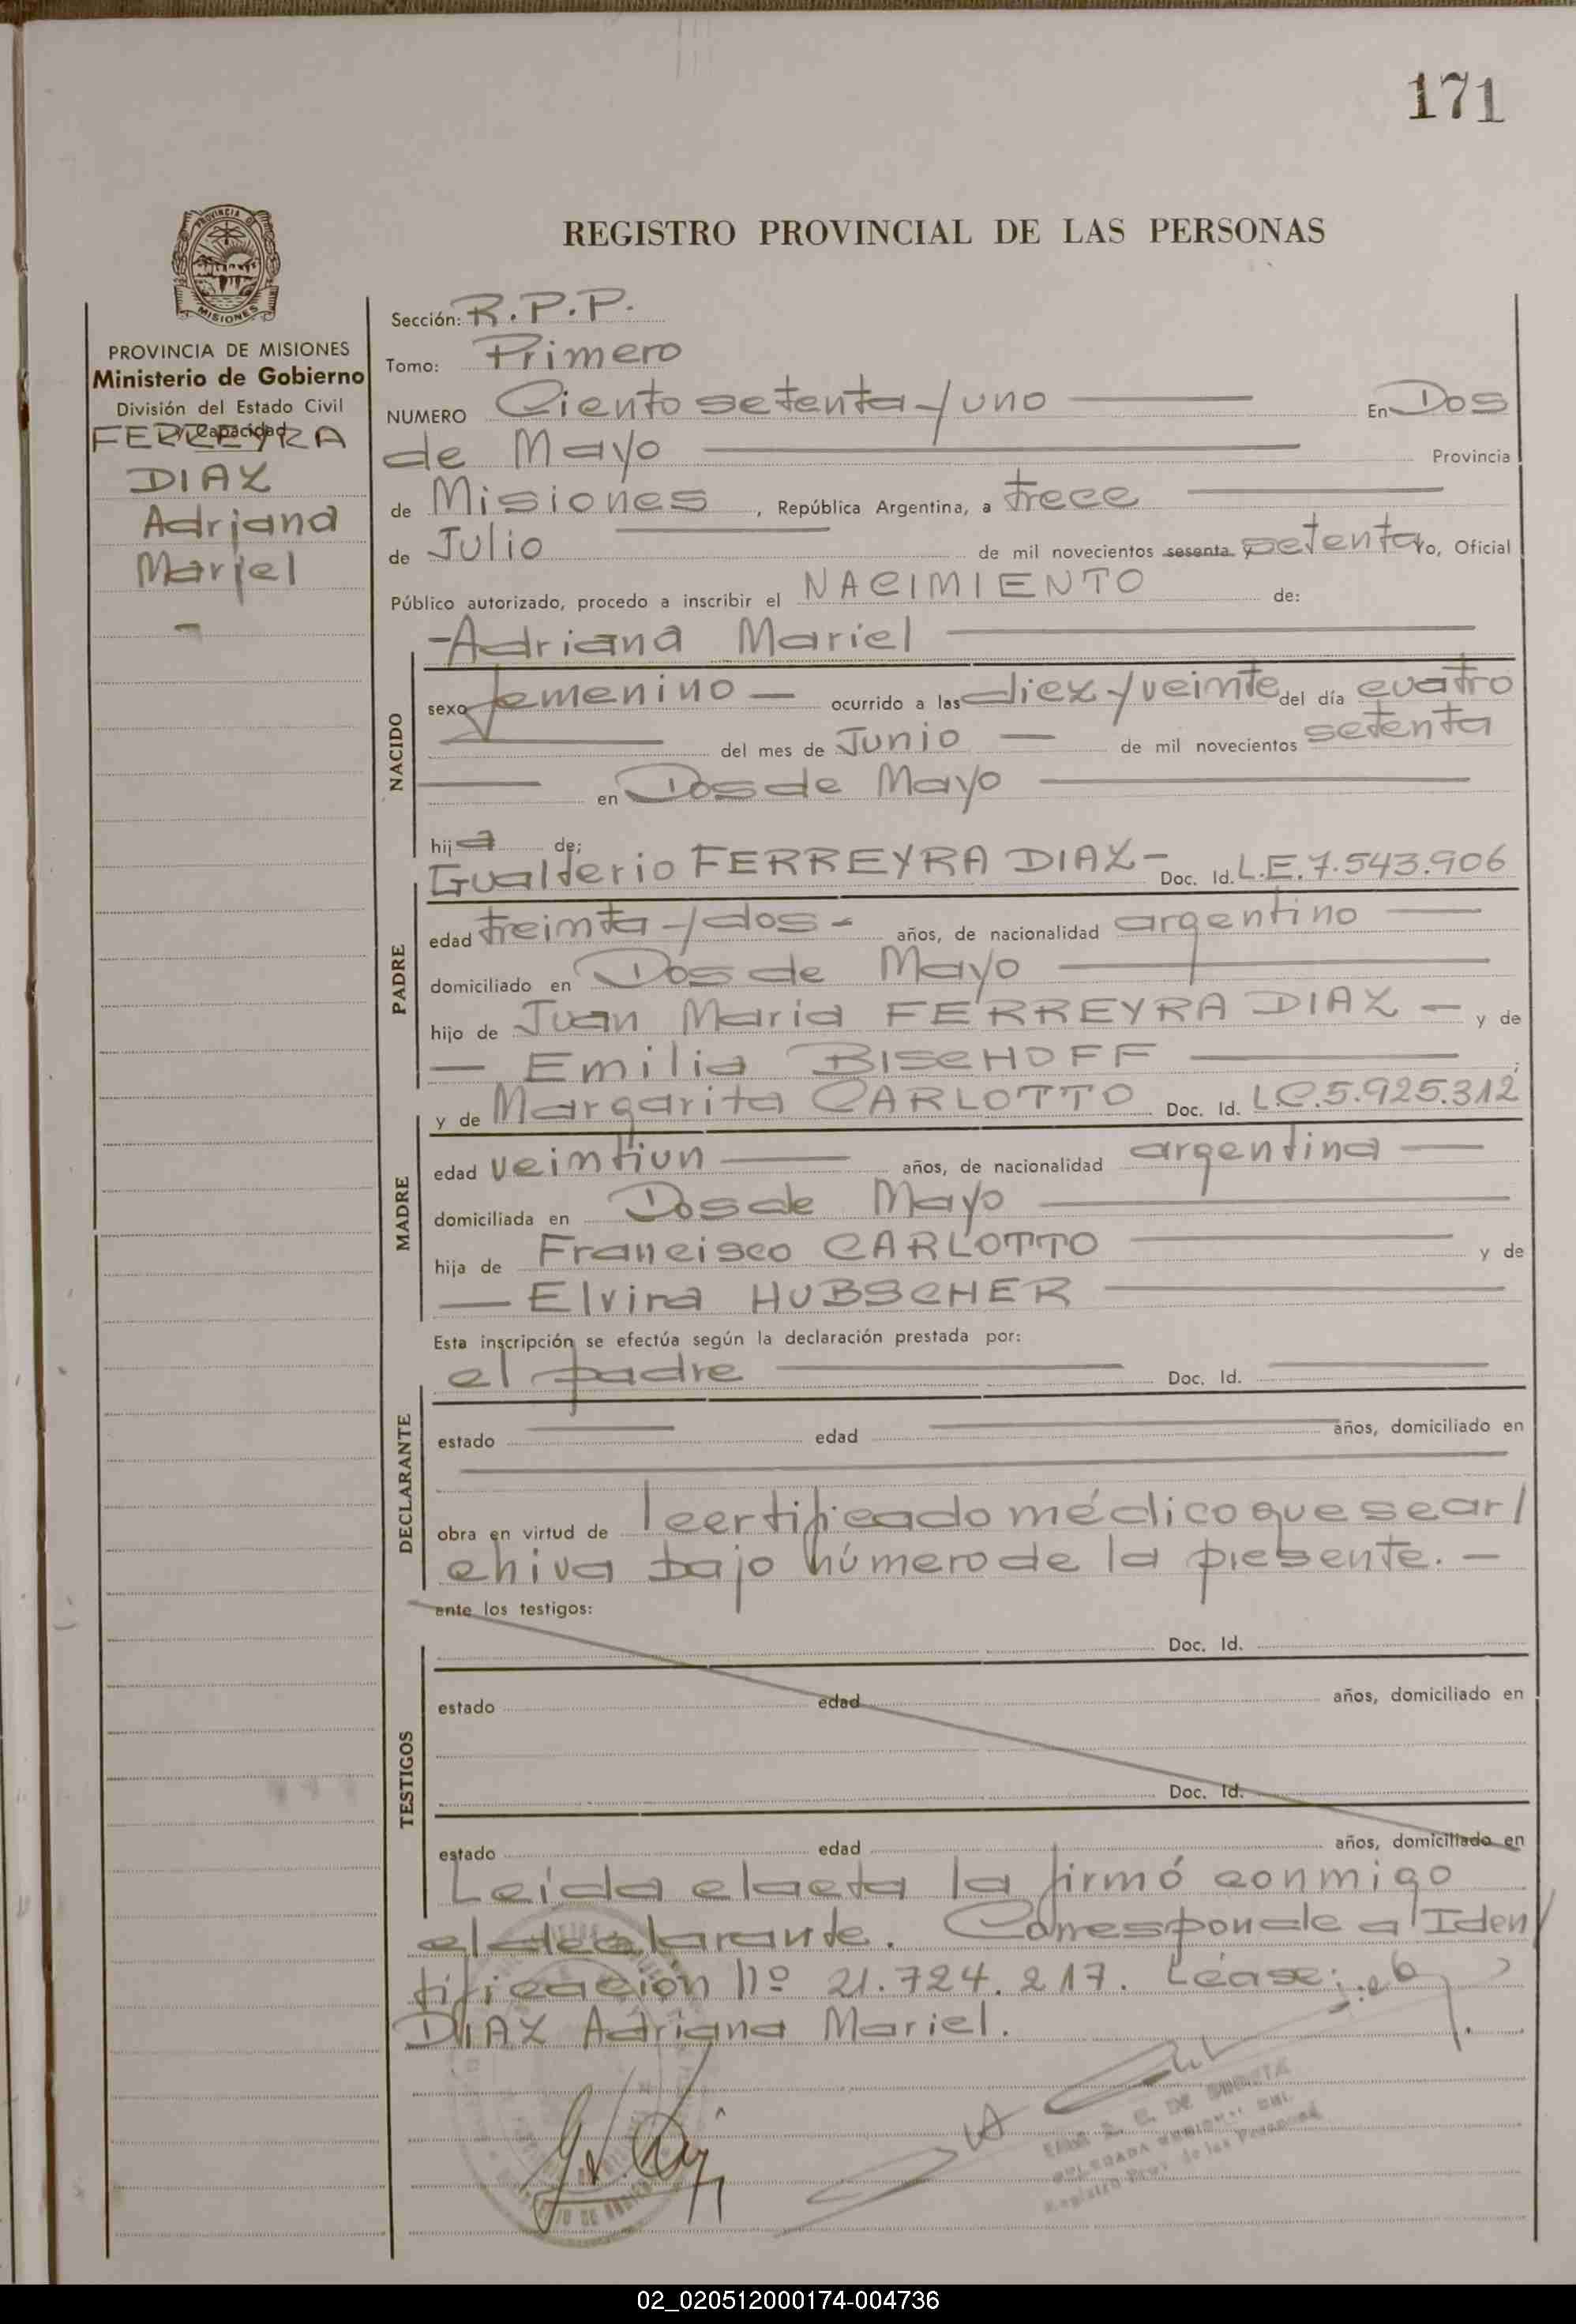 171
REGISTRO PROVINCIAL DE LAS PERSONAS
PROVINCIA DE
MISIONES
PROVINCIA DE MISIONES
Ministerio de Gobierno
División del Estado Civil
y Capacidad
FERREYRA
DIAZ
Adriana
Mariel
Sección: R.P.P.
Tomo: Primero
NUMERO Ciento setenta y uno En Dos
de Mayo Provincia
de Misiones, República Argentina, a trece
de Julio de mil novecientos sesenta y setenta yo, Oficial
Público autorizado, procedo a inscribir el NACIMIENTO de:
-Adriana Mariel
NACIDO
sexo femenino — ocurrido a las diez y veinte del día cuatro
del mes de Junio — de mil novecientos setenta
en Dos de Mayo
hija de:
Gualterio FERREYRA DIAZ- Doc. Id. L.E. 7.543.906
PADRE
edad treinta y dos - años, de nacionalidad argentino
domiciliado en Dos de Mayo
hijo de Juan Maria FERREYRA DIAZ — y de
— Emilia BISCHOFF
y de Margarita CARLOTTO Doc. Id. L.C. 5.925.312
MADRE
edad veintiun años, de nacionalidad argentina —
domiciliada en Dos de Mayo
hija de Francisco CARLOTTO y de
— Elvira HUBSCHER
Esta inscripción se efectúa según la declaración prestada por:
el padre Doc. Id.
DECLARANTE
estado edad años, domiciliado en
obra en virtud de certificado médico que se ar/
chiva bajo número de la presente. —
ante los testigos:
TESTIGOS
Doc. Id.
estado edad años, domiciliado en
Doc. Id.
estado edad años, domiciliado en
Leída el acta la firmó conmigo
el declarante. Corresponde a Iden/
tificación nº 21.724.217. Léase:
DIAZ Adriana Mariel.
02_020512000174-004736